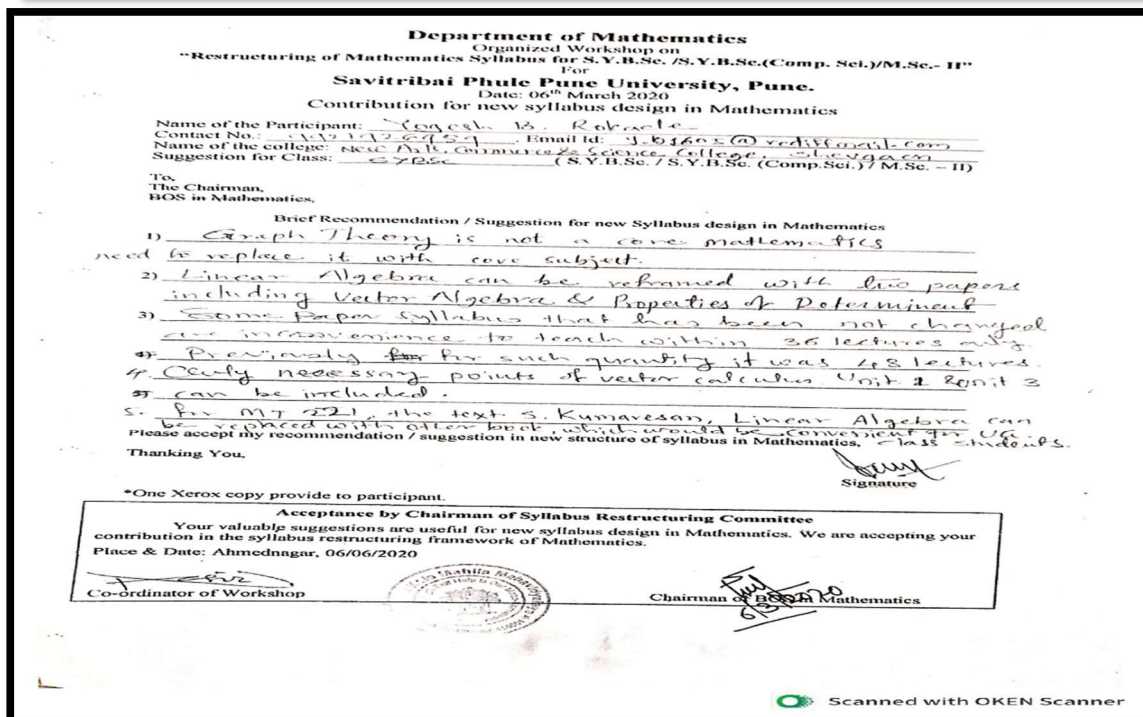 Department of Mathematics
Organized Workshop on
"Restructuring of Mathematics Syllabus for S.Y.B.Sc. /S.Y.B.Sc.(Comp. Sci.)/M.Sc.- II"
For
Savitribai Phule Pune University, Pune.
Date: 06th March 2020
Contribution for new syllabus design in Mathematics
Name of the Participant: Yogesh B.
Contact No.: Email Id: @rediffmail.com
Name of the college: New Arts, Commerce & Science College, Shevgaon
Suggestion for Class: SYBSc (S.Y.B.Sc. / S.Y.B.Sc. (Comp.Sci.) / M.Sc. – II)
To,
The Chairman,
BOS in Mathematics,
Brief Recommendation / Suggestion for new Syllabus design in Mathematics
1) Graph Theory is not a core mathematics
need to replace it with core subject.
2) Linear Algebra can be reframed with two papers
including Vector Algebra & Properties of Determinent
3) Some Paper Syllabus that has been not changed
are inconvenience to teach within 36 lectures only.
Previously for such quantity it was 48 lectures.
4. Only necessary points of vector calculus Unit 2 & Unit 3
can be included.
5. For MT 221, the text S. Kumaresan, Linear Algebra can
be replaced with other book, which would be convenient for UG
Please accept my recommendation / suggestion in new structure of syllabus in Mathematics, class students.
Thanking You,
Signature
*One Xerox copy provide to participant.
Acceptance by Chairman of Syllabus Restructuring Committee
Your valuable suggestions are useful for new syllabus design in Mathematics. We are accepting your
contribution in the syllabus restructuring framework of Mathematics.
Place & Date: Ahmednagar, 06/06/2020
Co-ordinator of Workshop
Chairman of BOS in Mathematics
6/3/2020
Mahila
Scanned with OKEN Scanner